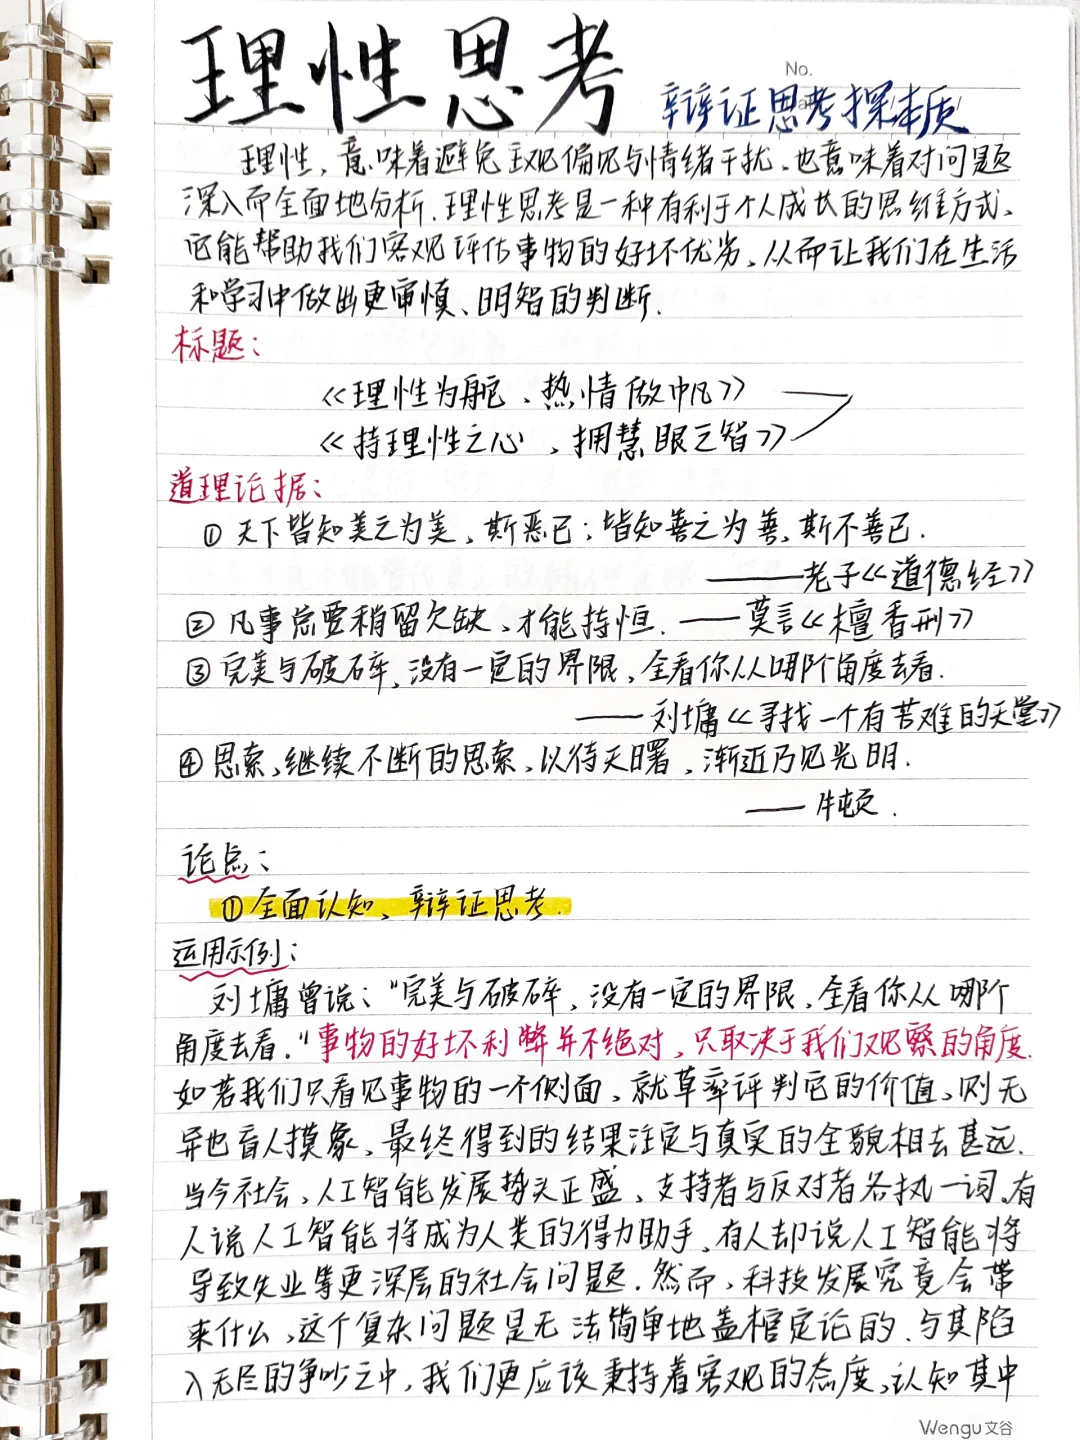 理性思考
No.
辩证思考探本质
理性，意味着避免主观偏见与情绪干扰、也意味着对问题
深入而全面地分析.理性思考是一种有利于个人成长的思维方式、
它能帮助我们客观评估事物的好坏优劣、从而让我们在生活
和学习中做出更审慎、明智的判断.
标题：
《理性为舵、热情做帆》
《持理性之心，拥慧眼之智》
道理论据：
①天下皆知美之为美，斯恶已；皆知善之为善，斯不善已.
——老子《道德经》
②凡事总要稍留欠缺、才能持恒.——莫言《檀香刑》
③完美与破碎，没有一定的界限，全看你从哪个角度去看.
——刘墉《寻找一个有苦难的天堂》
④思索，继续不断的思索、以待天曙，渐近乃见光明.
——牛顿.
论点：
①全面认知、辩证思考.
运用示例：
刘墉曾说：“完美与破碎，没有一定的界限，全看你从哪个
角度去看.”事物的好坏利弊并不绝对，只取决于我们观察的角度.
如若我们只看见事物的一个侧面，就草率评判它的价值、则无
异也盲人摸象、最终得到的结果注定与真实的全貌相去甚远.
当今社会、人工智能发展势头正盛、支持者与反对者各执一词、有
人说人工智能将成为人类的得力助手、有人却说人工智能将
导致失业等更深层的社会问题.然而、科技发展究竟会带
来什么、这个复杂问题是无法简单地盖棺定论的.与其陷
入无尽的争吵之中，我们更应该秉持着客观的态度、认知其中
Wengu文谷